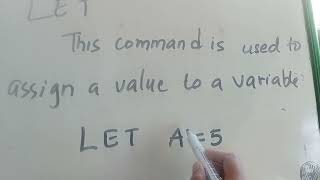 LET
This command is used to
assign a value to a variable.
LET A=5